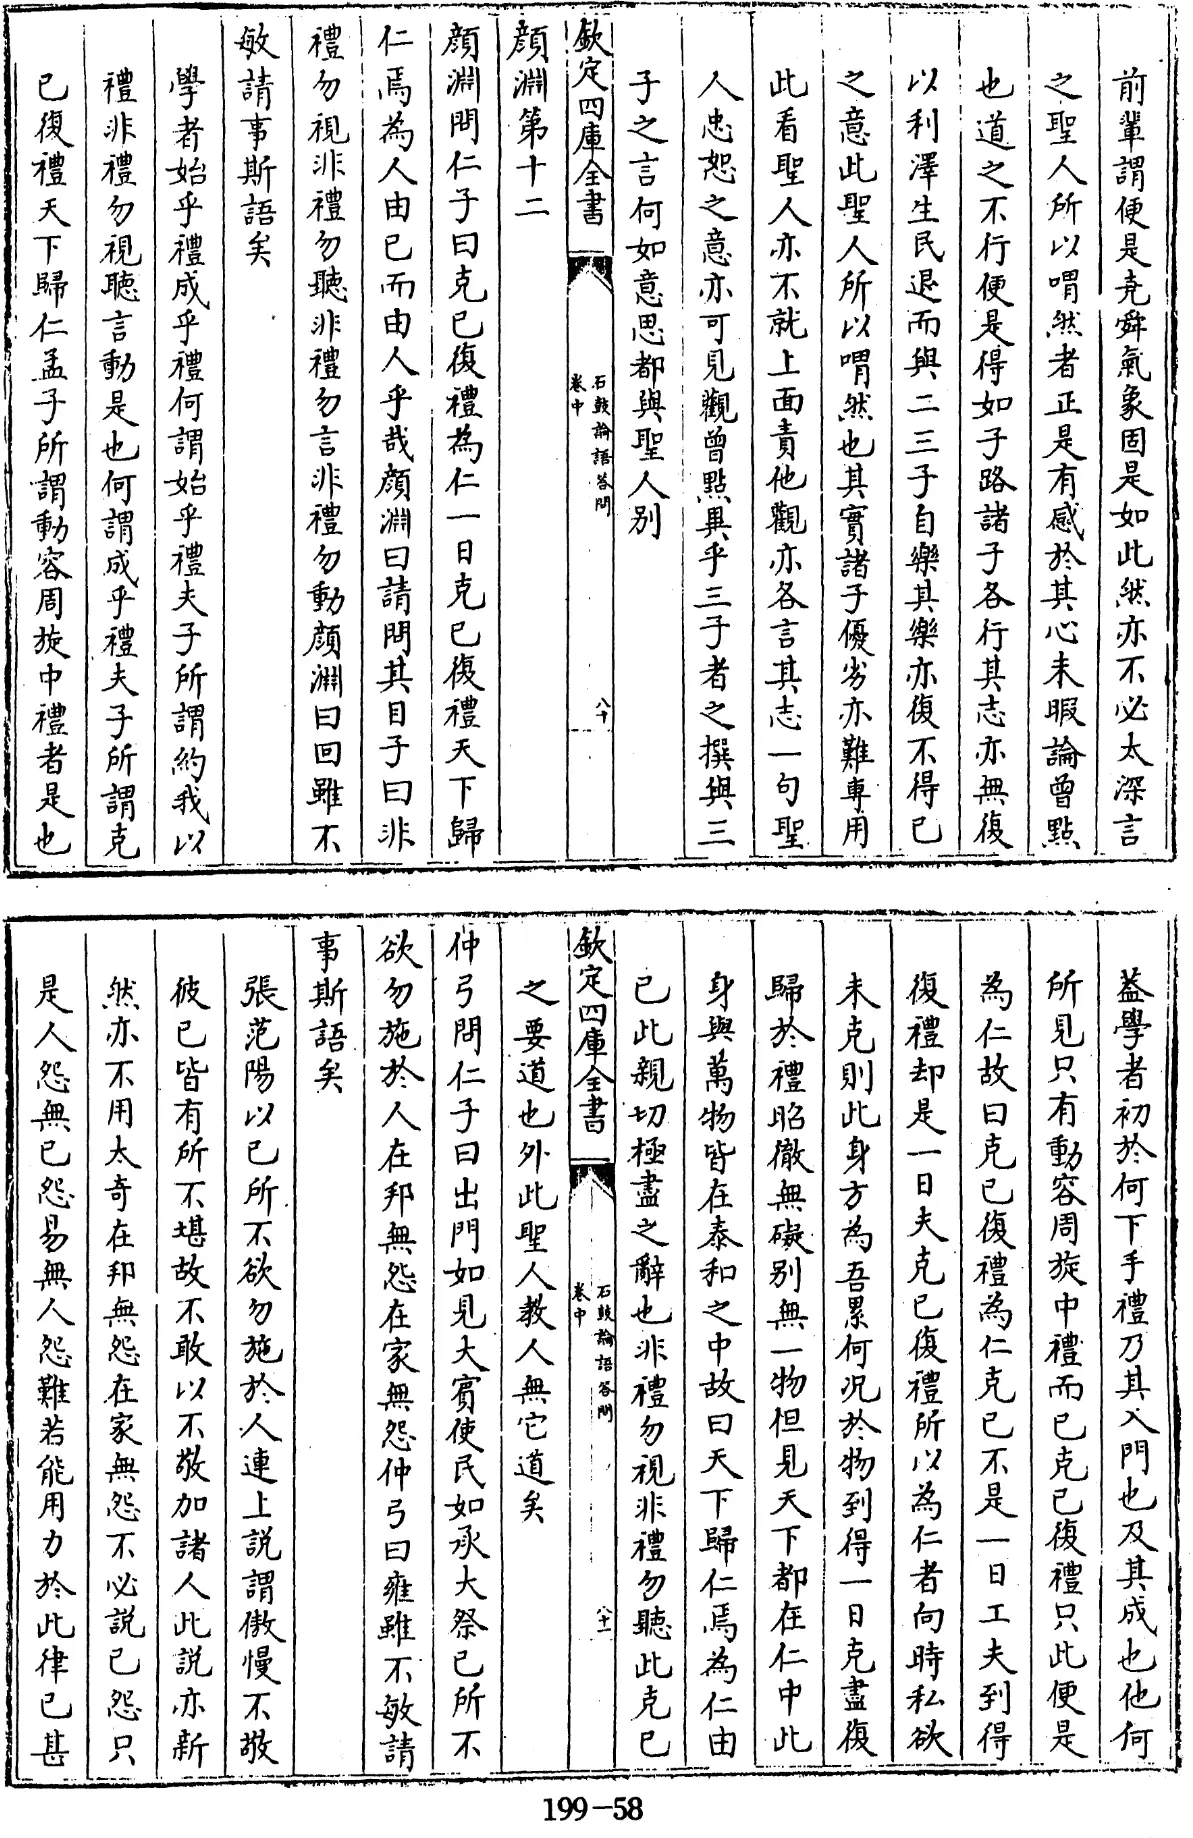 前輩謂便是堯舜氣象固是如此然亦不必太深言
之聖人所以喟然者正是有感於其心未暇論曾點
也道之不行便是得如子路諸子各行其志亦無復
以利澤生民退而與二三子自樂其樂亦復不得已
之意此聖人所以喟然也其實諸子優劣亦難專用
此看聖人亦不就上面責他觀亦各言其志一句聖
人忠恕之意亦可見觀曾點異乎三子者之撰與三
子之言何如意思都與聖人別
欽定四庫全書
石鼓論語答問
卷中
八十
顔淵第十二
顔淵問仁子曰克已復禮為仁一日克已復禮天下歸
仁焉為人由已而由人乎哉顔淵曰請問其目子曰非
禮勿視非禮勿聽非禮勿言非禮勿動顔淵曰回雖不
敏請事斯語矣
學者始乎禮成乎禮何謂始乎禮夫子所謂約我以
禮非禮勿視聽言動是也何謂成乎禮夫子所謂克
已復禮天下歸仁孟子所謂動容周旋中禮者是也
葢學者初於何下手禮乃其入門也及其成也他何
所見只有動容周旋中禮而已克已復禮只此便是
為仁故曰克已復禮為仁克已不是一日工夫到得
復禮却是一日夫克已復禮所以為仁者向時私欲
未克則此身方為吾累何況於物到得一日克盡復
歸於禮昭徹無礙別無一物但見天下都在仁中此
身與萬物皆在泰和之中故曰天下歸仁焉為仁由
已此親切極盡之辭也非禮勿視非禮勿聽此克已
欽定四庫全書
石鼓論語答問
卷中
八十一
之要道也外此聖人教人無它道矣
仲弓問仁子曰出門如見大賓使民如承大祭已所不
欲勿施於人在邦無怨在家無怨仲弓曰雍雖不敏請
事斯語矣
張范陽以已所不欲勿施於人連上説謂傲慢不敬
彼已皆有所不堪故不敢以不敬加諸人此説亦新
然亦不用太奇在邦無怨在家無怨不必説已怨只
是人怨無已怨易無人怨難若能用力於此律已甚
199-58